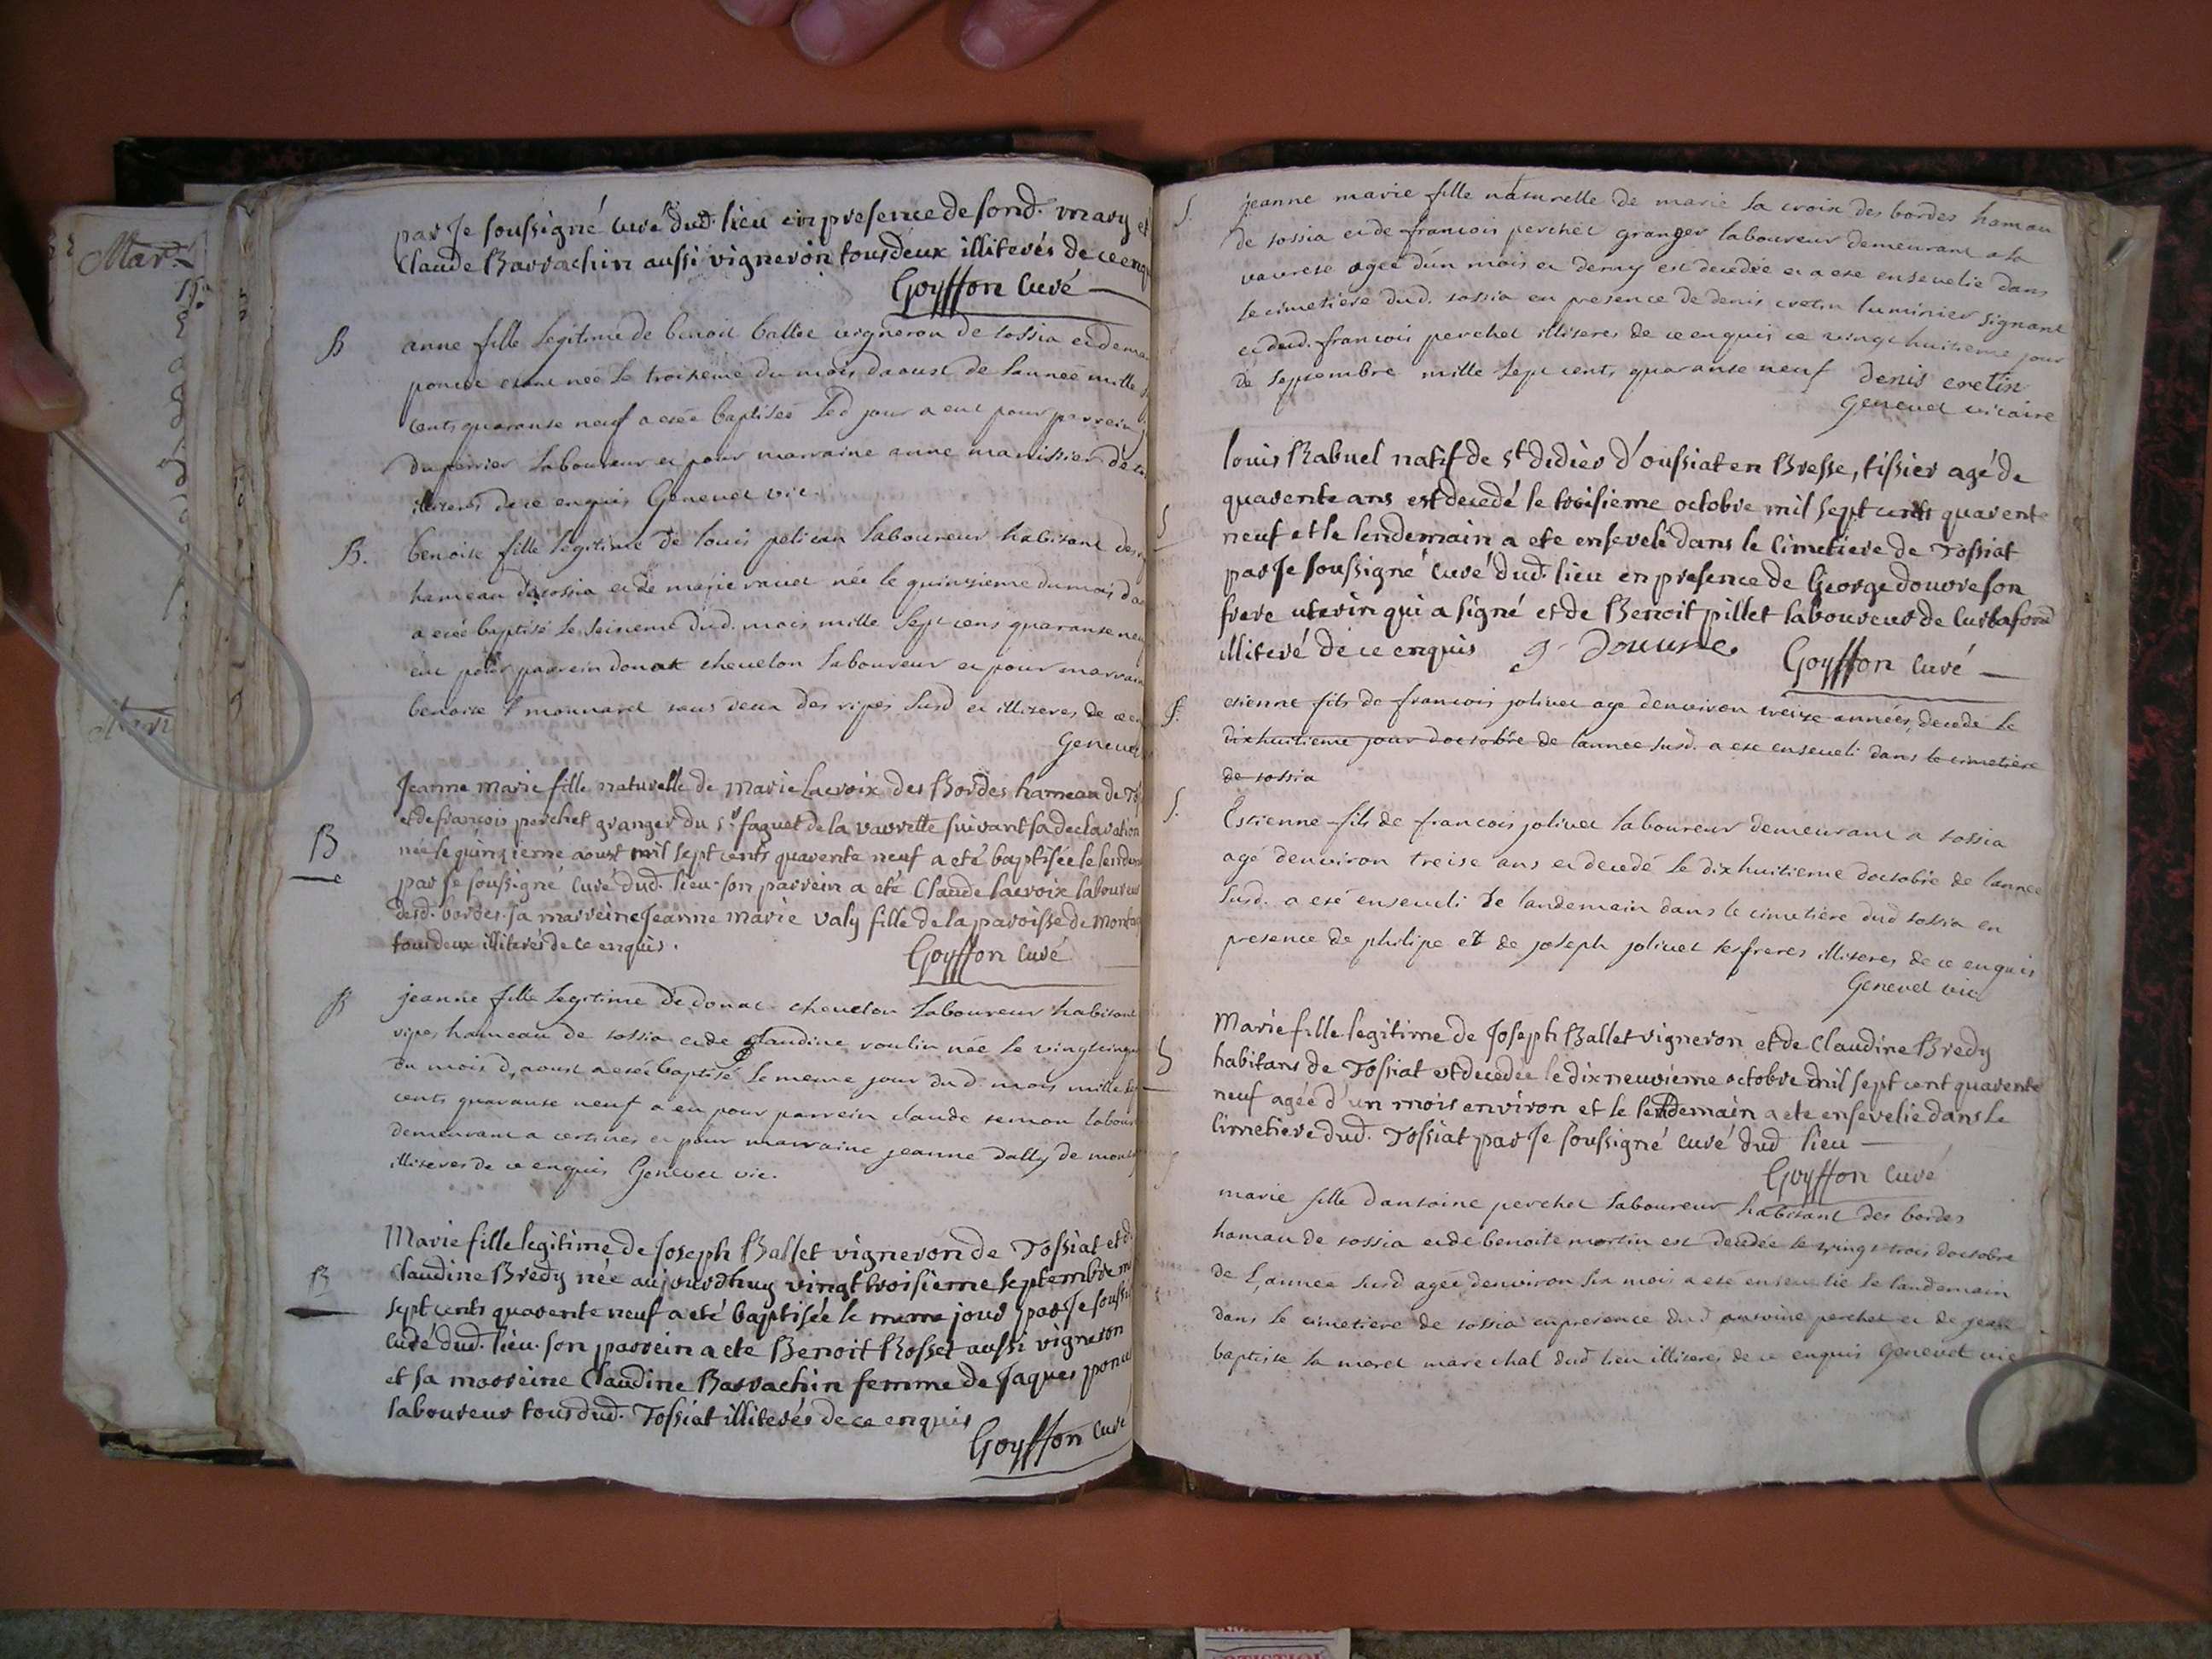 par Je soussigné curé dud. lieu en presence de sond. mary et
Claude Barrachin aussi vigneron tous deux illiterés de ce enq
Goyffon Curé
B
anne fille legitime de benoit ballet vigneron de tossia et de ma
poncet etant neé le troiseme du mois daoust de lanneé mille
cents quarante neuf a eteé baptiseé led jour a eut pour parrein
du perrier laboureur et pour marraine anne manissier de
illiteres de ce enquis Genevet vic.
B.
benoite fille legitime de louis pelican laboureur habitant des
hameau de tossia et de marie ravet née le quinzieme du mois d
a eteé baptisé le seizieme dud. mois mille sept cens quarante neu
eut pour parrein donat chevelon laboureur et pour marrain
benoite monnard tous deux des ripes susd et illiteres de ce en
Genevet
Jeanne marie fille naturelle de marie Lacroix des Bordes hameau de To
et de francois perchet granger du sr. faguet de la vavrette suivant sa declaration
B
née le quinzieme aoust mil sept cents quarente neuf a eté baptisée le lendem
par Je soussigné curé dud. lieu. son parrein a eté Claude lacroix laboureur
desd. bordes. sa marreine Jeanne marie valy fille de la paroisse de Monta
tous deux illiterés de ce enquis.
Goyffon Curé
B
jeanne fille legitime de donat chevelon laboureur habitant
ripes hameau de tossia et de Claudine voulin née le vingt cinqu
du mois d,aoust a eteé baptisé le meme jour dud. mois mille se
cents quarante neuf a eu pour parrein claude semon labour
demeurant a certines et pour marraine jeanne dally de mont
illiteres de ce enquis Genevet vic.
Marie fille legitime de Joseph Ballet vigneron de Tossiat et d
B
Claudine Bredy née aujourdhuy vingt troisieme septembre m
sept cents quarente neuf a eté baptisée le meme jour par Je soussi
curé dud. lieu. son parrein a eté Benoit Rosset aussi vigneron
et sa marreine Claudine Barrachin femme de Jaques ponc
laboureur tous dud. Tossiat illiterés de ce enquis
Goyffon Curé
S.
jeanne marie fille naturelle de marie la croix des bordes hamau
de tossia et de francois perchet granger laboureur demeurant a la
vavrete ageé d'un mois et demy est decedée et a ete ensevelie dans
le cimetiere dud. tossia en presence de denis cretin luminier signant
et dud. francois perchet illiteres de ce enquis ce vingt huitieme jour
de septembre mille sept cents quarante neuf denis cretin
Genevet vicaire
louis Rabuel natif de St didier d'oussiat en Bresse, tissier agé de
quarente ans est decedé le troisieme octobre mil sept cents quarente
S
neuf et le lendemain a ete enseveli dans le Cimetiere de Tossiat
par Je soussigné Curé dud. lieu en presence de George douvre son
frere uterin qui a signé et de Benoit pillet laboureur de Curtafond
illiteré de ce enquis g Douvre Goyffon Curé
S.
etienne fils de francois jolivet age denviron treize années, decede le
dixhuitieme jour doctobre de lannee susd. a ete enseveli dans le cimetiere
de tossia
S.
Estienne fils de francois jolivet laboureur demeurant a tossia
agé denviron treise ans et decedé le dixhuitieme doctobre de lannee
susd. a eté enseveli le landemain dans le cimetiere dud tossia en
presence de philipe et de joseph jolivet ses freres illiteres de ce enquis
Genevet vic
Marie fille legitime de Joseph Ballet vigneron et de Claudine Bredy
S
habitans de Tossiat est decedée le dix neuvieme octobre mil sept cent quarente
neuf agée d'un mois environ et le lendemain a eté ensevelie dans le
Cimetiere dud. Tossiat par Je soussigné curé dud lieu
Goyffon Curé
marie fille dantoine perchet laboureur habitant des bordes
hamau de tossia et de benoite mortin est decedée le vingt trois doctobre
de l,année susd ageé denviron six mois a ete ensevelie le landemain
dans le cimetiere de tossia en presence dud antoine perchet et de jean
baptiste la morel marechal dud lieu illiteres de ce enquis Genevet vic